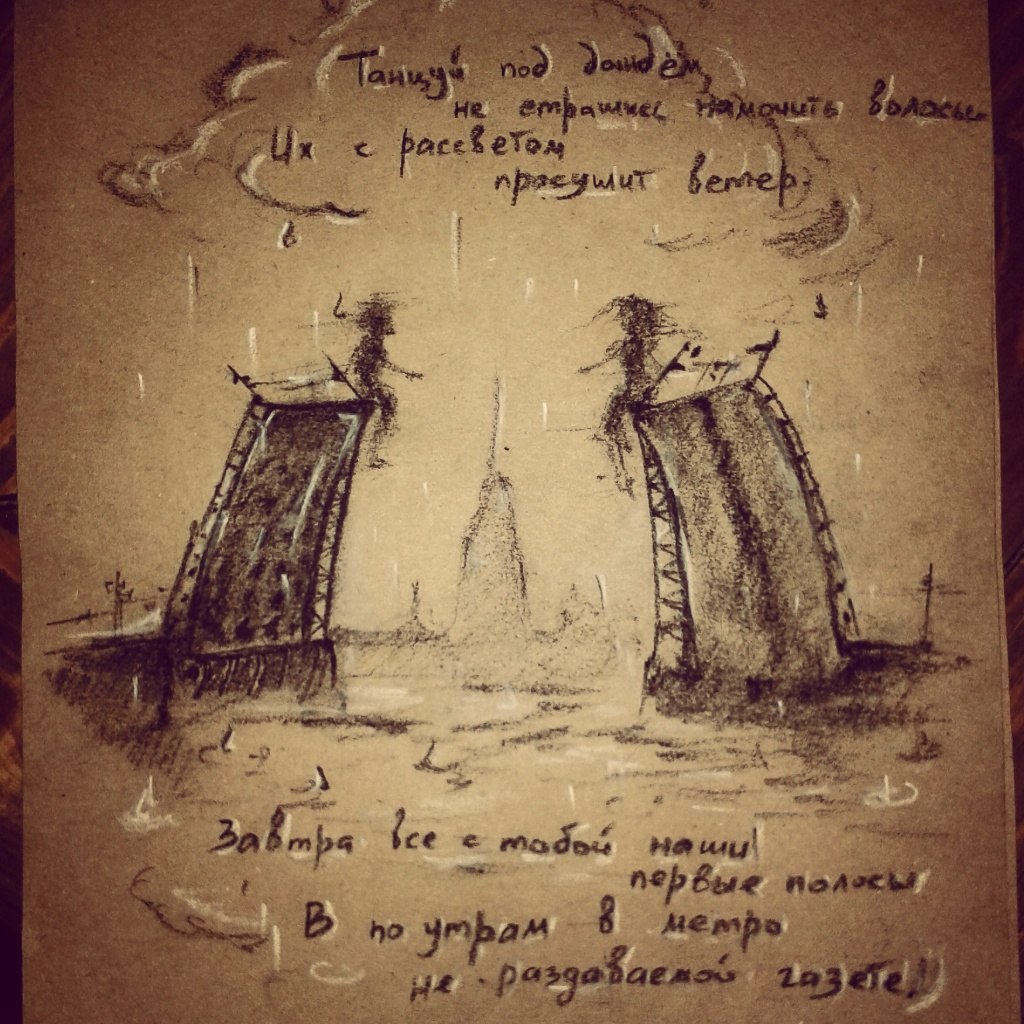 Танцуй под дождём,
не страшись намочить волосы.
Их с рассветом
просушит ветер.
Завтра все с тобой наши
первые полосы
В по утрам в метро
не раздаваемой газете!